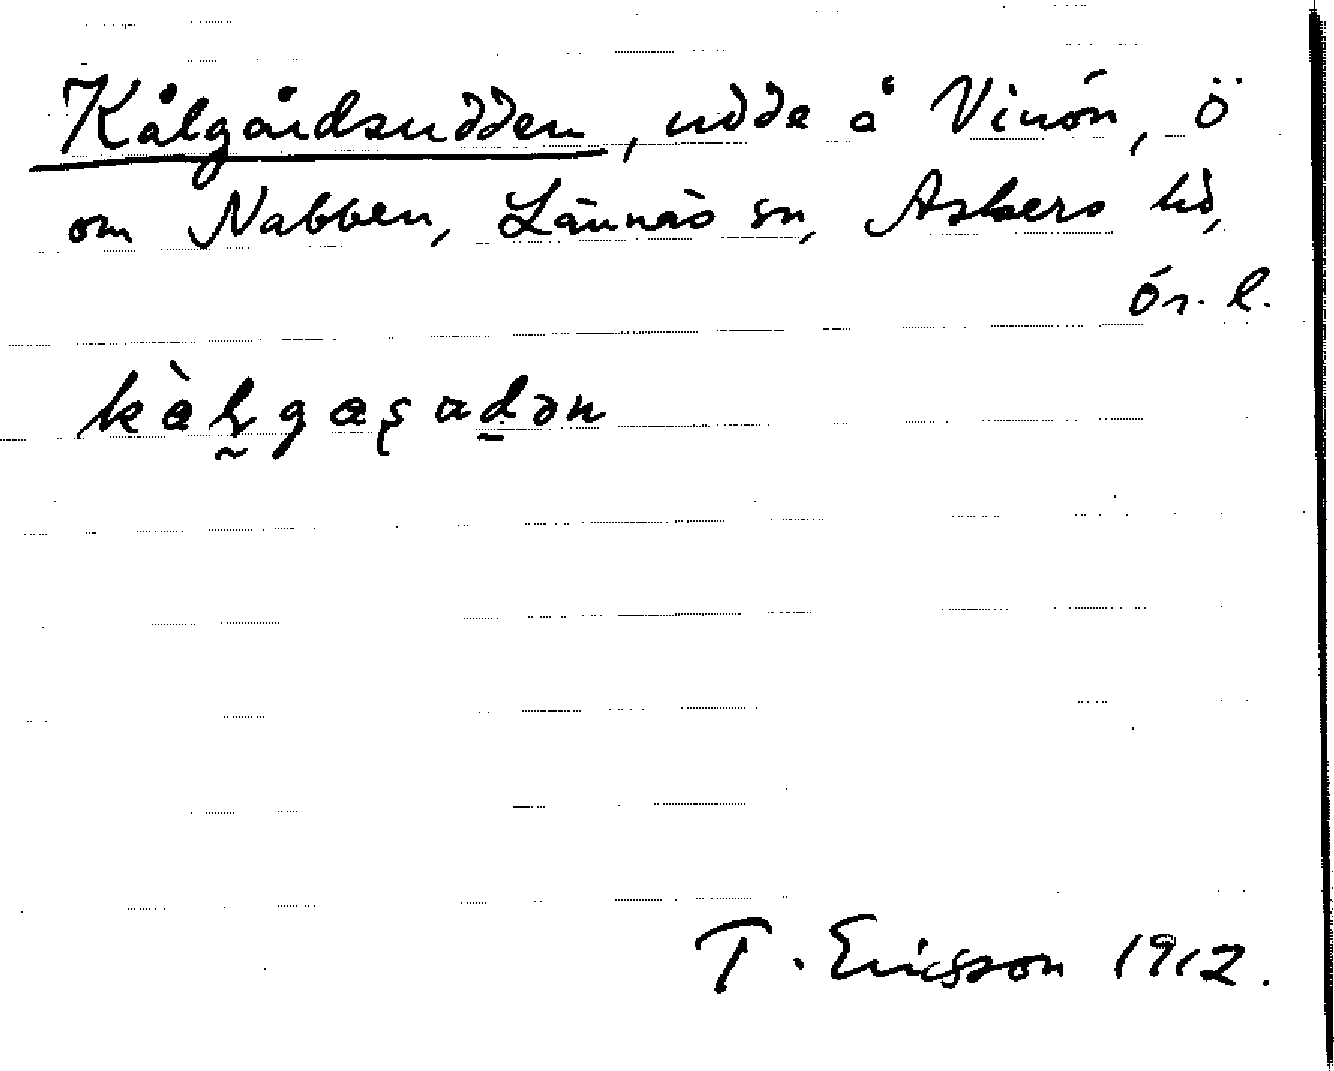 Kålgårdsudden, udde å Vinön, ö
om Nabben, Lännäs sn, Askers hd,
Ör. l.
T. Ericsson 1912.